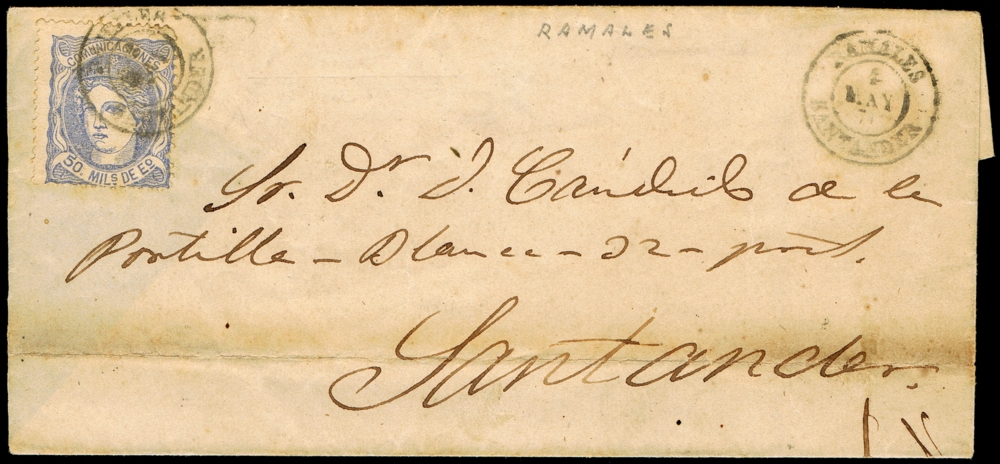 RAMALES
COMUNICACIONES
50. MILS DE EO
RAMALES
2
MAY
71
SANTANDER
Sr. Dr. D. Cándido de la
Portilla - Blanca - 32 - pral.
Santander